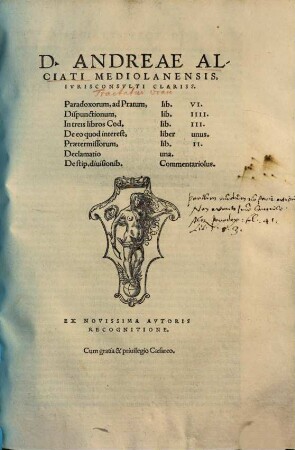 D. ANDREAE AL⸗
CIATI MEDIOLANENSIS,
IVRISCONSVLTI CLARISS.
Paradoxorum, ad Pratum, lib. VI.
Dispunctionum, lib. IIII.
In treis libros Cod, lib. III.
De eo quod interest, liber unus.
Prætermissorum, lib. II.
Declamatio una.
De stip. diuisionib. Commentariolus.
EX NOVISSIMA AVTORIS
RECOGNITIONE.
Cum gratia & priuilegio Cæsareo.